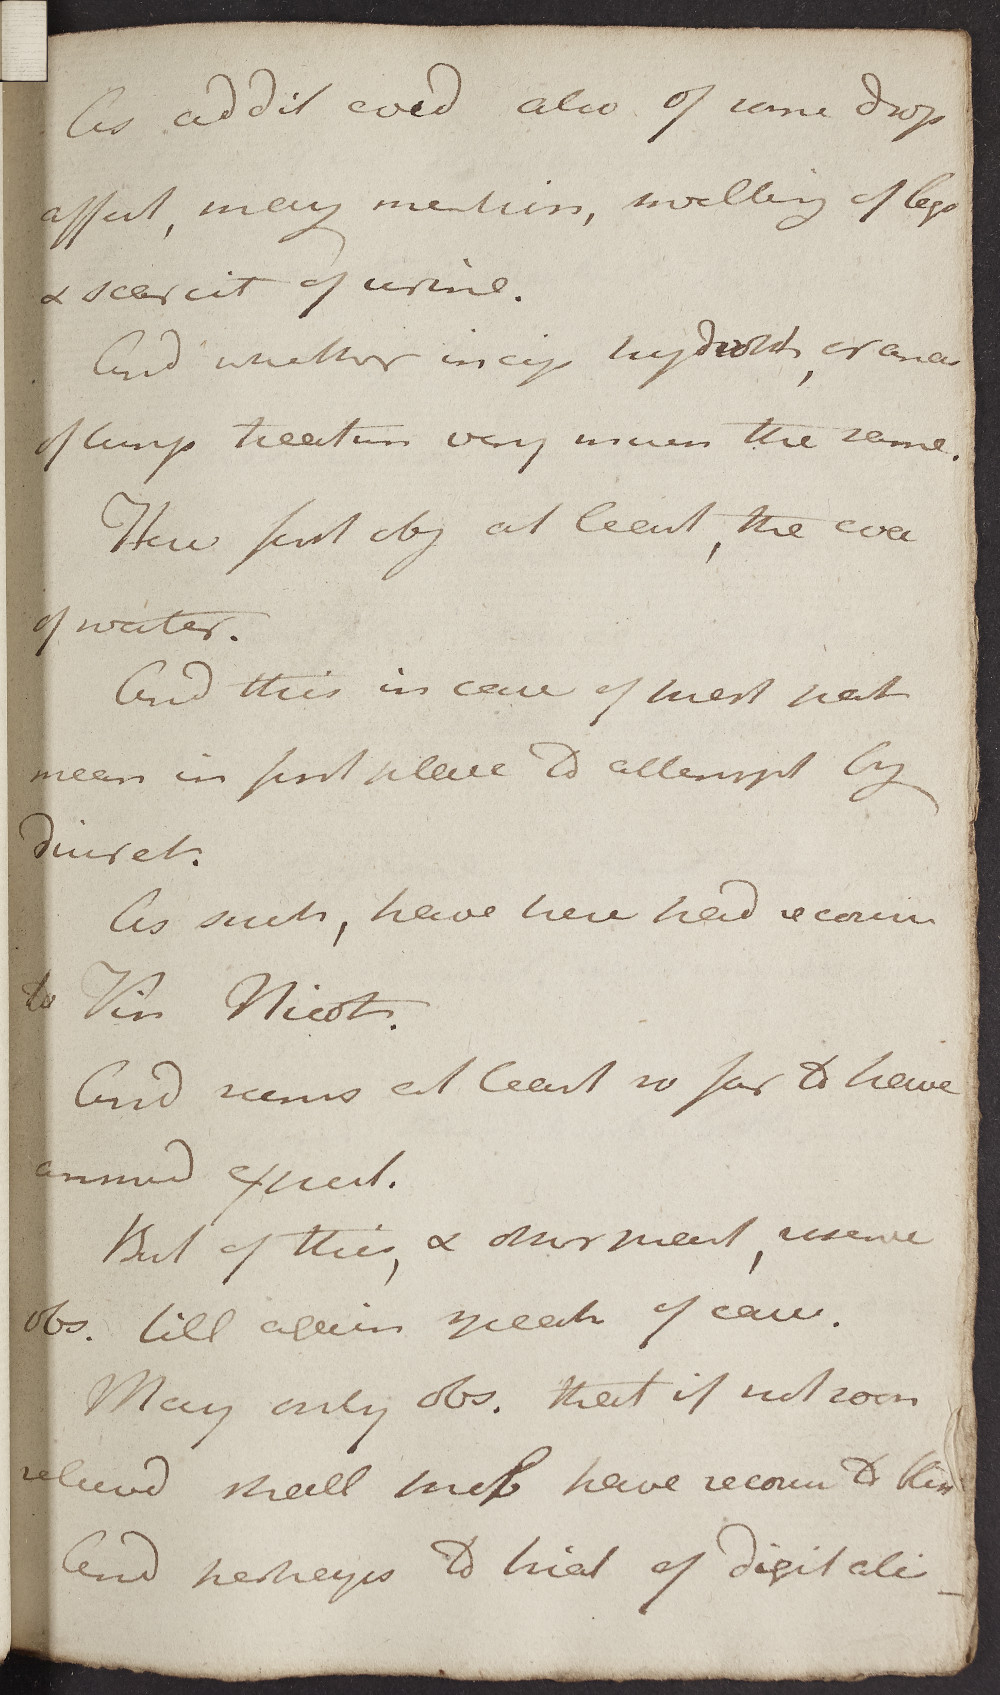 As addit evid also of some drop
affect, may mention, swelling of legs
& scarcit of urine.
And whether incip hydroth, or anas
of lungs treatm very much the same.
Here first obj at least, the eva
of water.
And this in case of most pat
mean in first place to attempt by
diuret.
As such, have here had recour
to Vin Nicot.
And seems at least so far to have
answd expect.
But of this, & other pract, reserve
obs. till again speak of case.
May only obs. that if not soon
relievd shall have recour to
And perhaps to trial of digitali